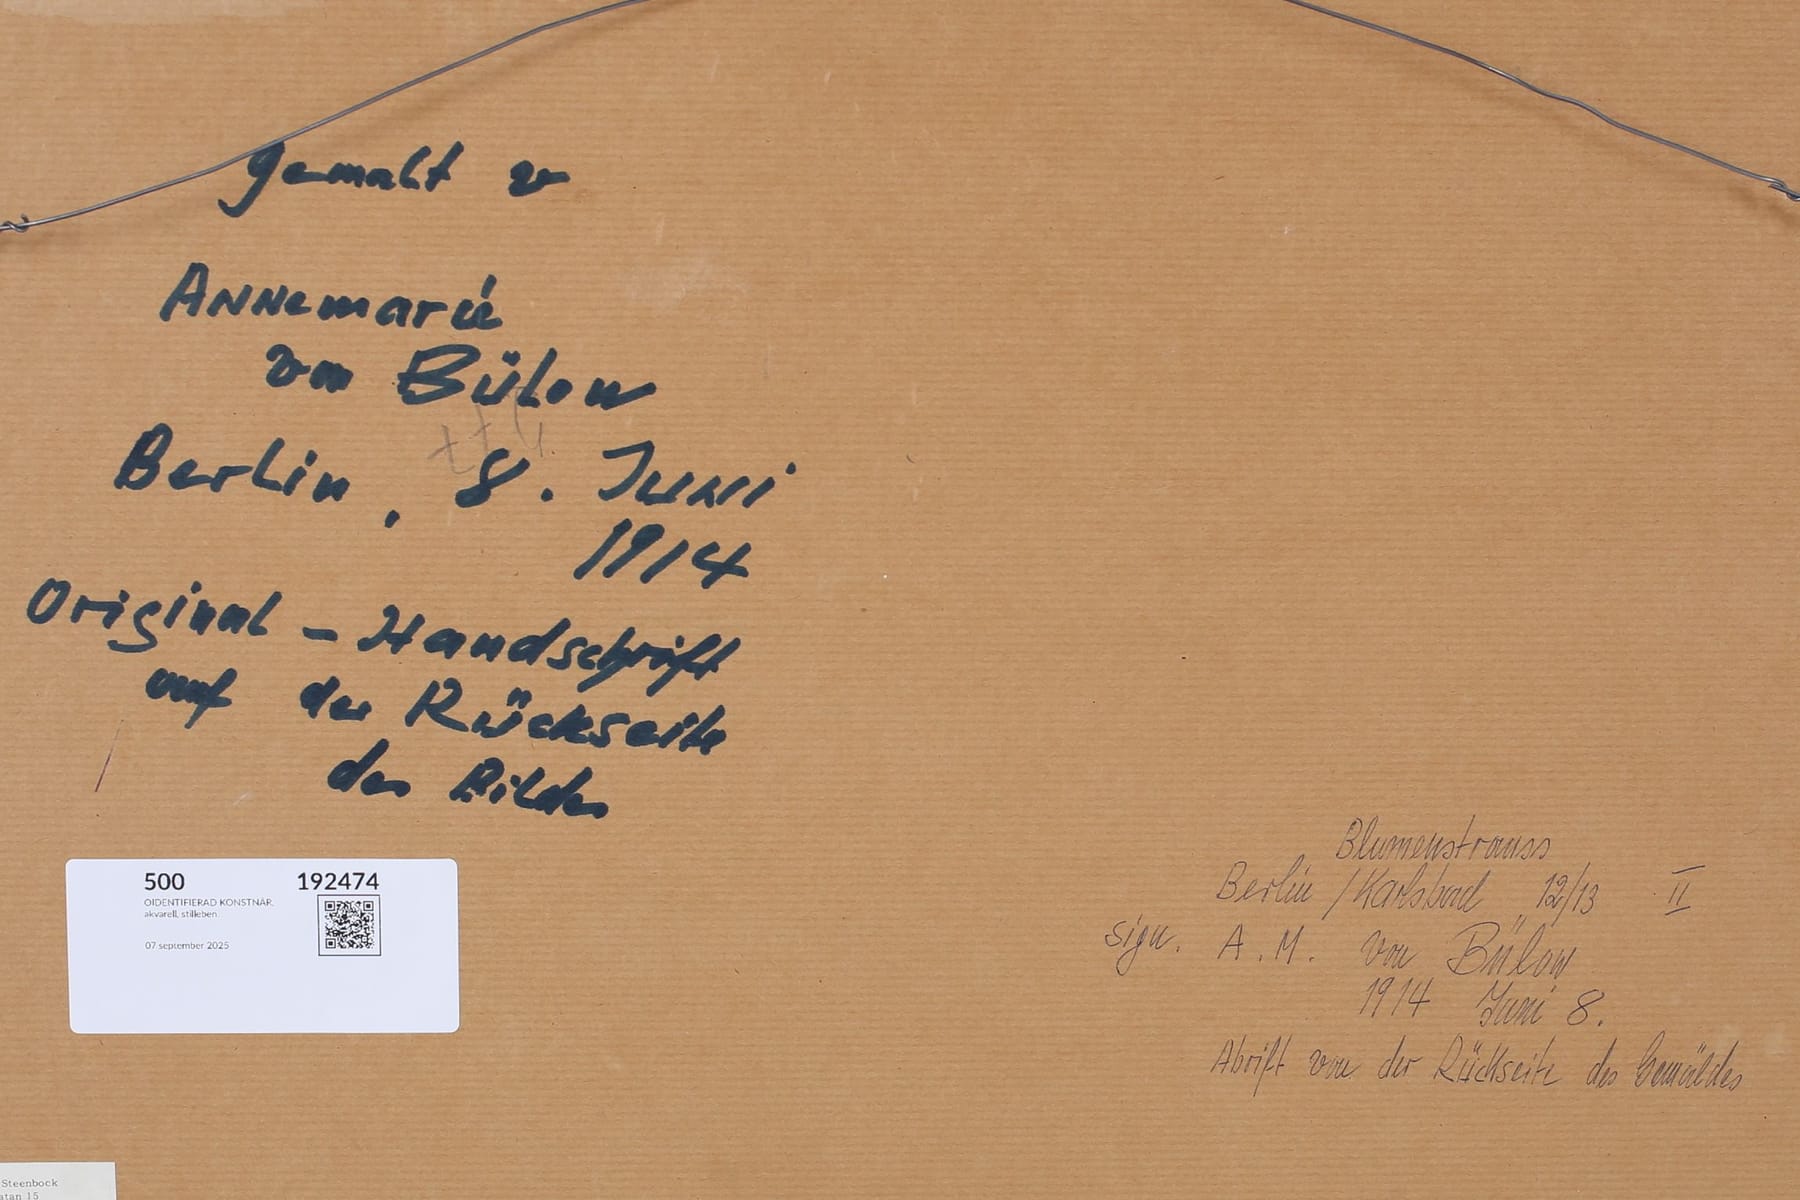 gemalt v
Annemarie
von Bülow
Berlin, 8. Juni
1914
Original - Handschrift
auf der Rückseite
des Bildes
500 192474
OIDENTIFIERAD KONSTNÄR.
akvarell, stilleben
07 september 2025
Blumenstrauss
Berlin / Karlsbad 12/13 II
sign. A. M. von Bülow
1914 Juni 8.
Abrift von der Rückseite des Gemäldes
Steenbock
atan 15